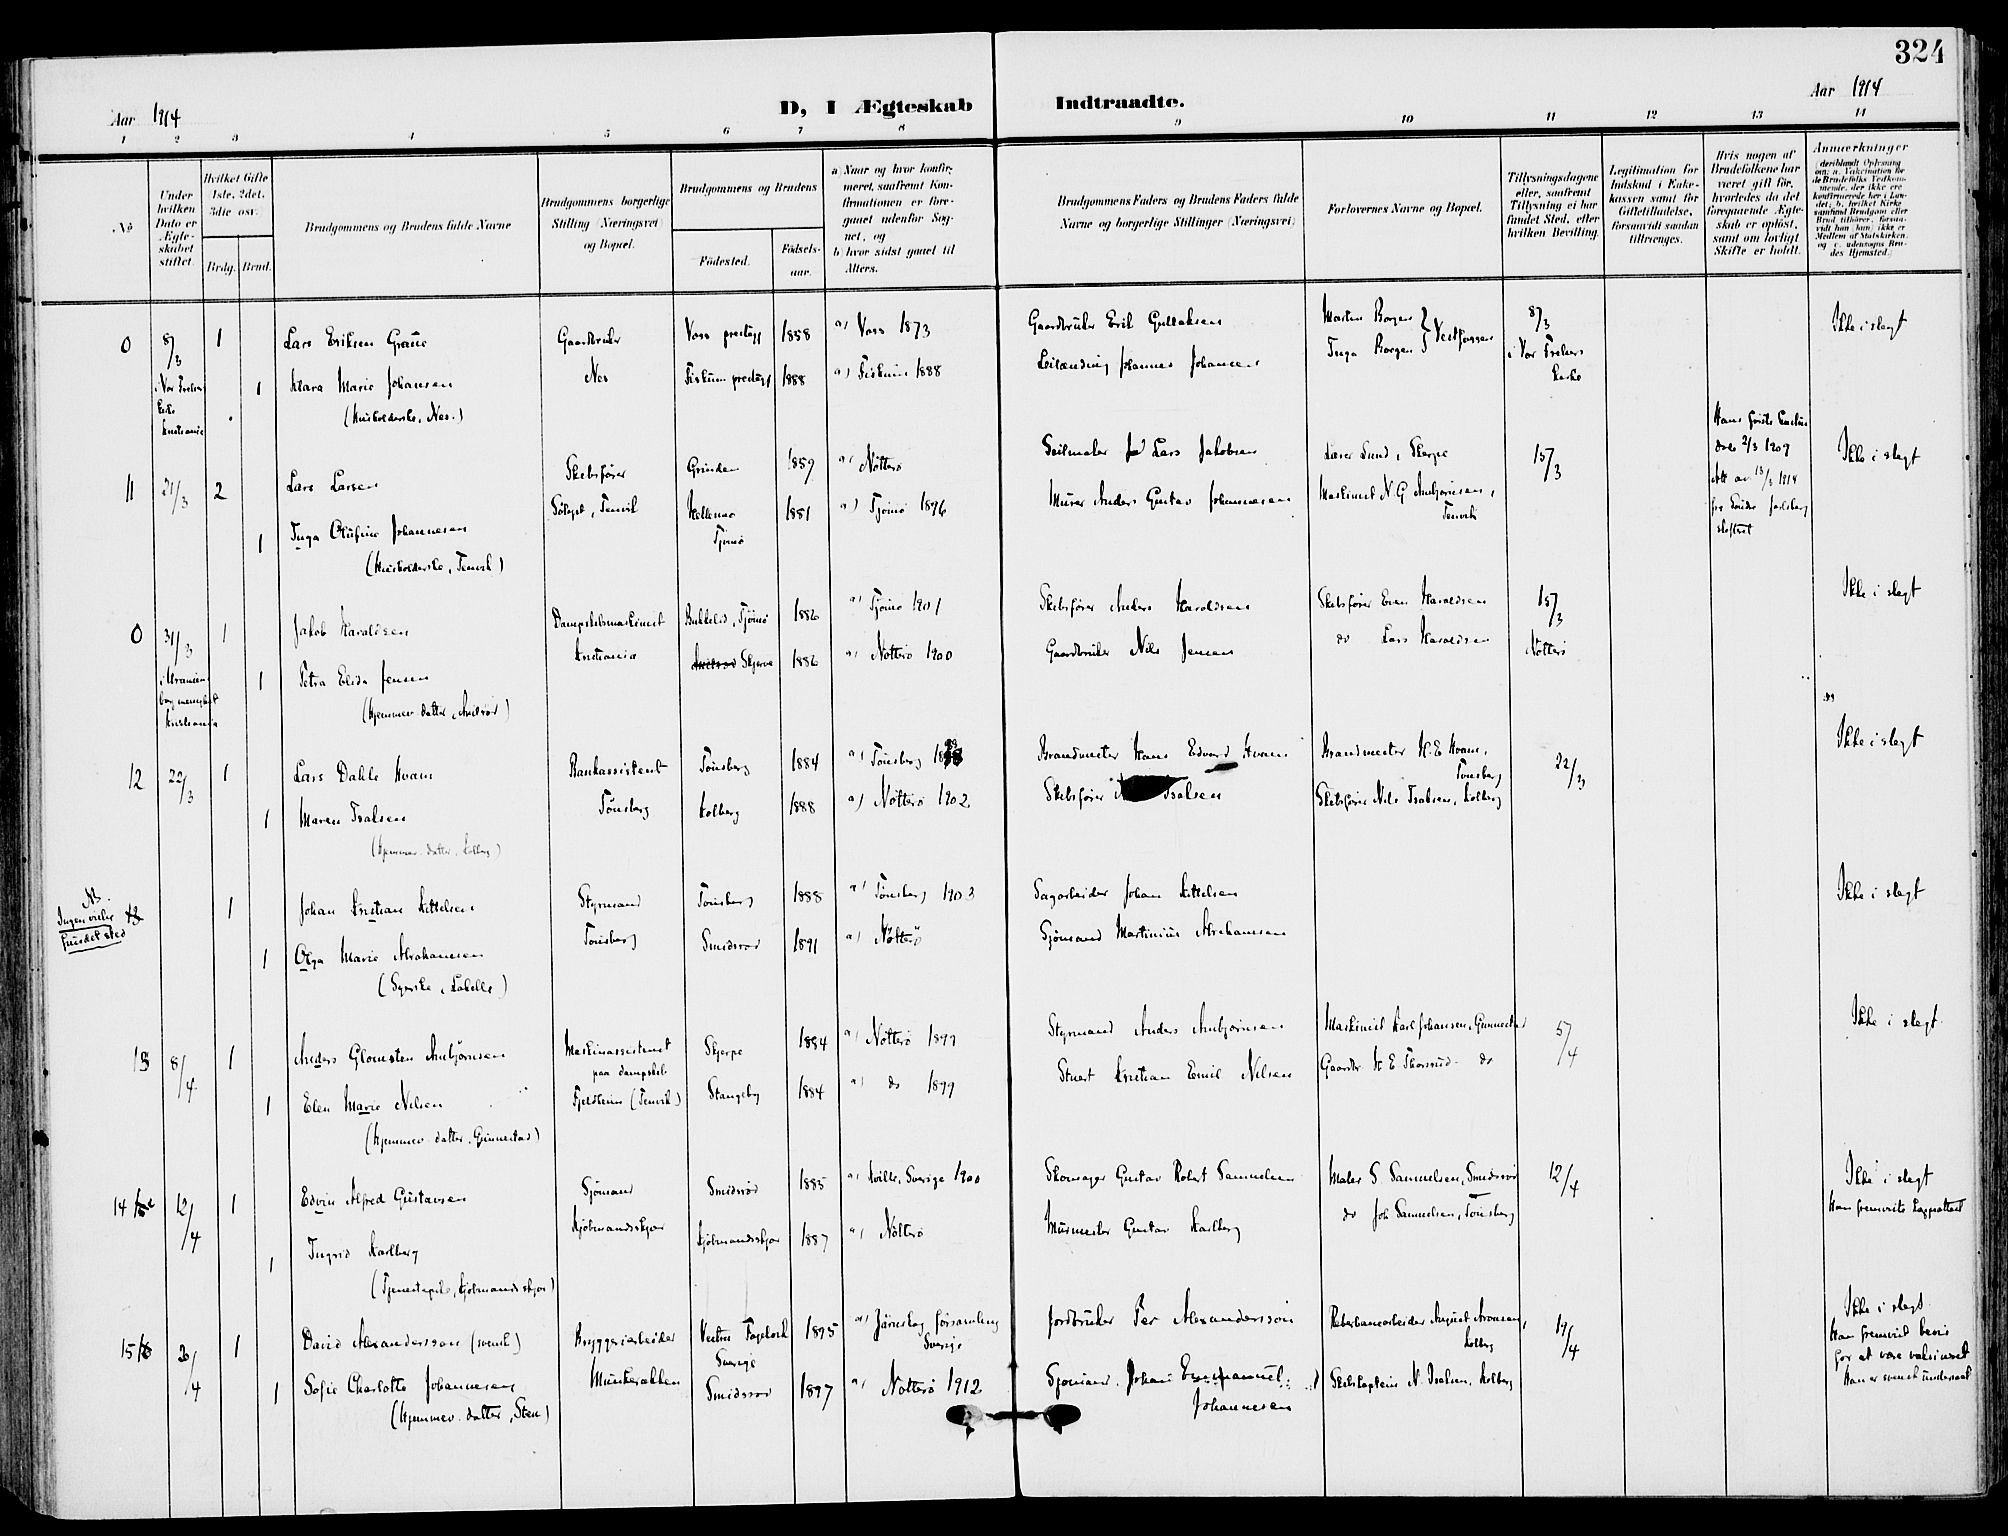 324
Aar 1914
D, I Ægteskab Indtraadte.
Aar 1914
1 2 3 4 5 6 7 8 9 10 11 12 13 14
No
Under hvilken Dato er Ægteskabet stiftet.
Hvilket Gifte 1ste, 2det, 3die osv.
Brdg. Brud.
Brudgommens og Brudens fulde Navne
Brudgommens borgerlige Stilling (Næringsvei) og Bopæl.
Brudgommens og Brudens
Fødested.
Fødselsaar.
a) Naar og hvor konfirmeret, saafremt Konfirmationen er foregaaet udenfor Sognet, og
b) hvor sidst gaaet til Alters.
Brudgommens Faders og Brudens Faders fulde Navne og borgerlige Stillinger (Næringsvei)
Forlovernes Navne og Bopæl.
Tillysningsdagene eller, saafremt Tillysning ei har fundet Sted, efter hvilken Bevilling.
Legitimation for Indskud i Enkekassen samt for Giftetilladelse, forsaavidt saadan tiltrænges.
Hvis nogen af Brudefolkene har været gift før, hvorledes da det foregaaende Ægteskab er opløst, samt om lovligt Skifte er holdt.
Anmerkninger
0 8/3 1 Lars Eriksen Graue Gaardbruker Voss prestegj 1858 a) Voss 1873 Gaardbruker Erik Gullaksen Marten Borgen 8/3 Ikke i slegt
i Vor Frelsers Kirke Kristiania 1 Klara Marie Johansen Nes Fiskum prestegj 1888 a) Fiskum Leilænding Johannes Johansen Inga Borgen Vestfossen i Vor Frelsers Kirke
(Husholderske, Nes.)
11 21/3 2 Lars Larsen Skibsfører Grinden 1859 a) Nøtterø Seilmaker Lars Jakobsen Lærer Lund, Skerpe 15/3 Hans første hustru døde 2/3 1909 Ikke i slegt
1 Inga Olufine Johannesen Solgst, Tenvik Hellemo Tjømø 1881 a) Tjømø 1896 Murer Anders Gustav Johannesen Maskinist N. G Anbjørnsen, Tenvik
(Husholderske, Tenvik)
0 31/3 1 Jakob Haraldsen Dampskibsmaskinist Bukkelid, Tjømø 1886 a) Tjømø 1901 Skibsfører Anders Haraldsen Skibsfører Even Haraldsen 15/3 Ikke i slegt
i Uranienborg menighet Kristiania 1 Petra Elida Jensen Kristiania Skjerve 1886 a) Nøtterø 1900 Gaardbruker Nils Jensen do Lars Haraldsen Nøtterø
(Hjemmev. datter,
12 22/3 1 Lars Dahle Hvam Bankassistent Tønsberg 1884 a) Tønsberg Brandmester Hans Edvard Hvam Brandmester H. E Hvam, Tønsberg 22/3 Ikke i slegt
1 Maren Isaksen Tønsberg Kolberg 1888 a) Nøtterø 1902 Skibsfører Isaksen Skibsfører Nils Isaksen, Kolberg
(Hjemmev. datter, Kolberg)
NB. Ingen vielse fundet sted 13 1 Johan Kristian Kittelsen Styrmand Tønsberg 1888 a) Tønsberg 1903 Sagarbeider Johan Kittelsen Ikke i slegt
1 Olga Marie Abrahamsen Tønsberg Smidsrød 1891 a) Nøtterø Sjømand Martinius Abrahamsen
(Syerske,
13 8/4 1 Anders Glomsten Anbjørnsen Maskinassistent paa dampskib Skjerpe 1884 a) Nøtterø 1899 Styrmand Anders Anbjørnsen Maskinist Karl Johansen, Gunnestad 5/4 Ikke i slegt
1 Elen Marie Nilsen Fjeldheim (Tenvik) Stangeby 1884 a) do 1899 Stuert Kristian Emil Nilsen Gaardbr H E Thorsrud do
(Hjemmev. datter, Gunnestad)
14 12/4 1 Edvin Alfred Gustavsen Sjømand Smidsrød 1885 a) Kville, Sverige 1900 Skomager Gustav Robert Samuelsen Maler S Samuelsen, Smidsrød 12/4 Ikke i slegt
1 Ingrid Karlberg Kjøbmandsskjær Kjøbmandsskjær 1887 a) Nøtterø Murmester Gustav Karlberg do Joh Samuelsen, Tønsberg
(Tjenestepike, Kjøbmandsskjær)
15 26/4 1 David Alexandersson (svensk) Bryggeriarbeider Sverige 1895 a) Järnskog församling Sverige Jordbruker Per Alexandersson Reberbanearbeider August Arvesen, Kolberg 19/4 Ikke i slegt.
1 Sofie Charlotte Johannesen Munkerekken Smidsrød 1897 a) Nøtterø 1912 Sjømand Johan Emmanuel Johannesen Skibskaptein N. Isaksen, Kolberg Han fremviste bevis for at være vaksineret
(Hjemmev. datter, Sten) Han er svensk undersaat